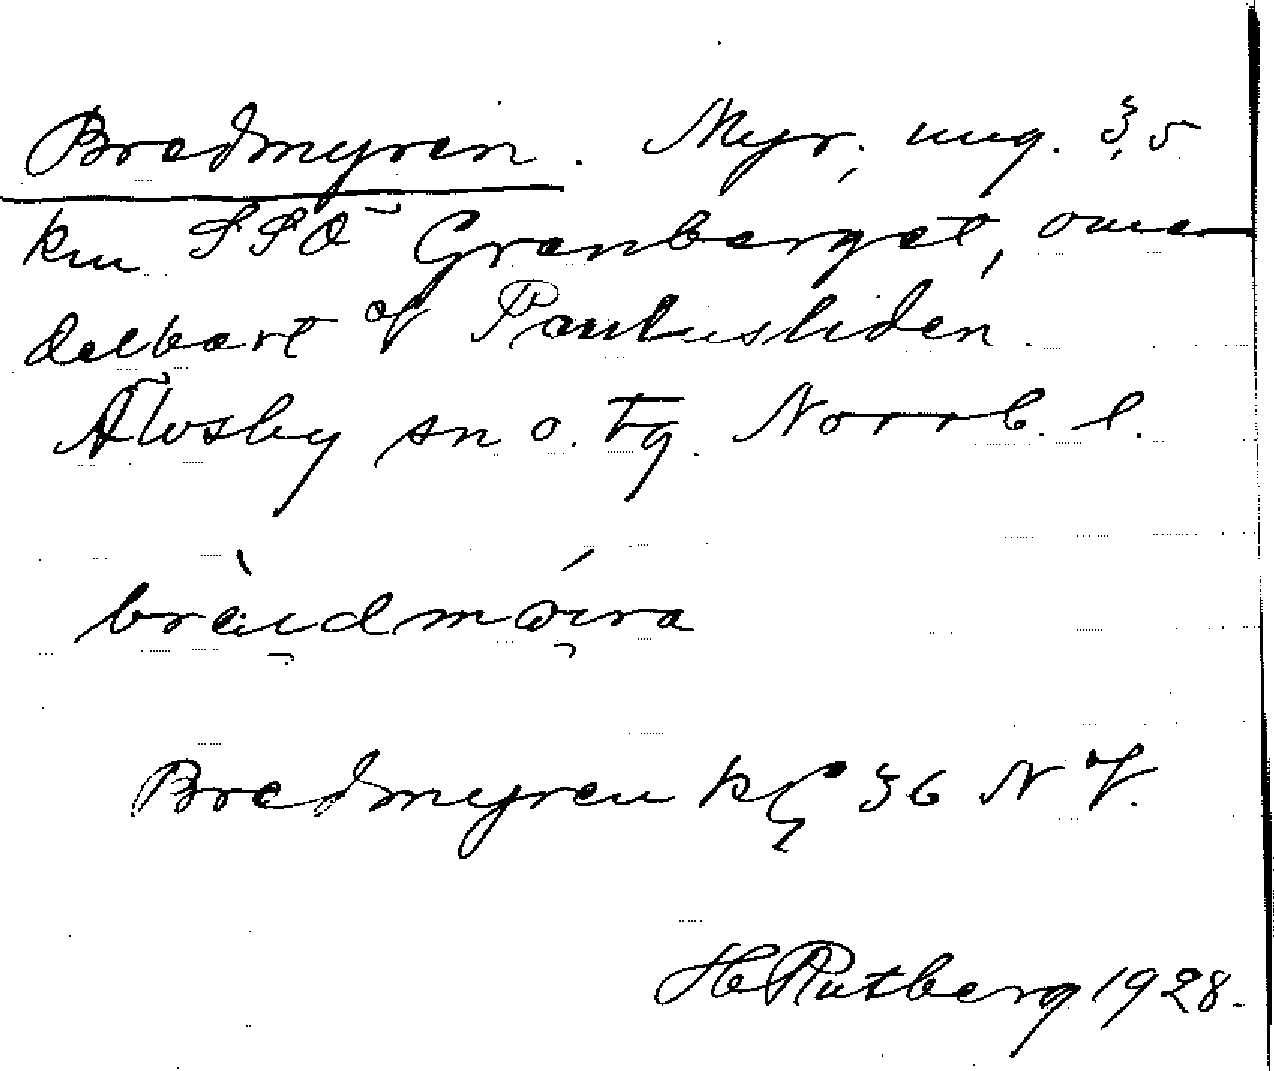 Bredmyren. Myr, ung. 3,5
km SSÖ Granberget, ome-
delbart of Paulusliden.
Älvsby sn o. tg. Norrb. l.
brèi̯dmǿi̯ra
Bredmyren kf 36 NV.
H Rutberg 1928.